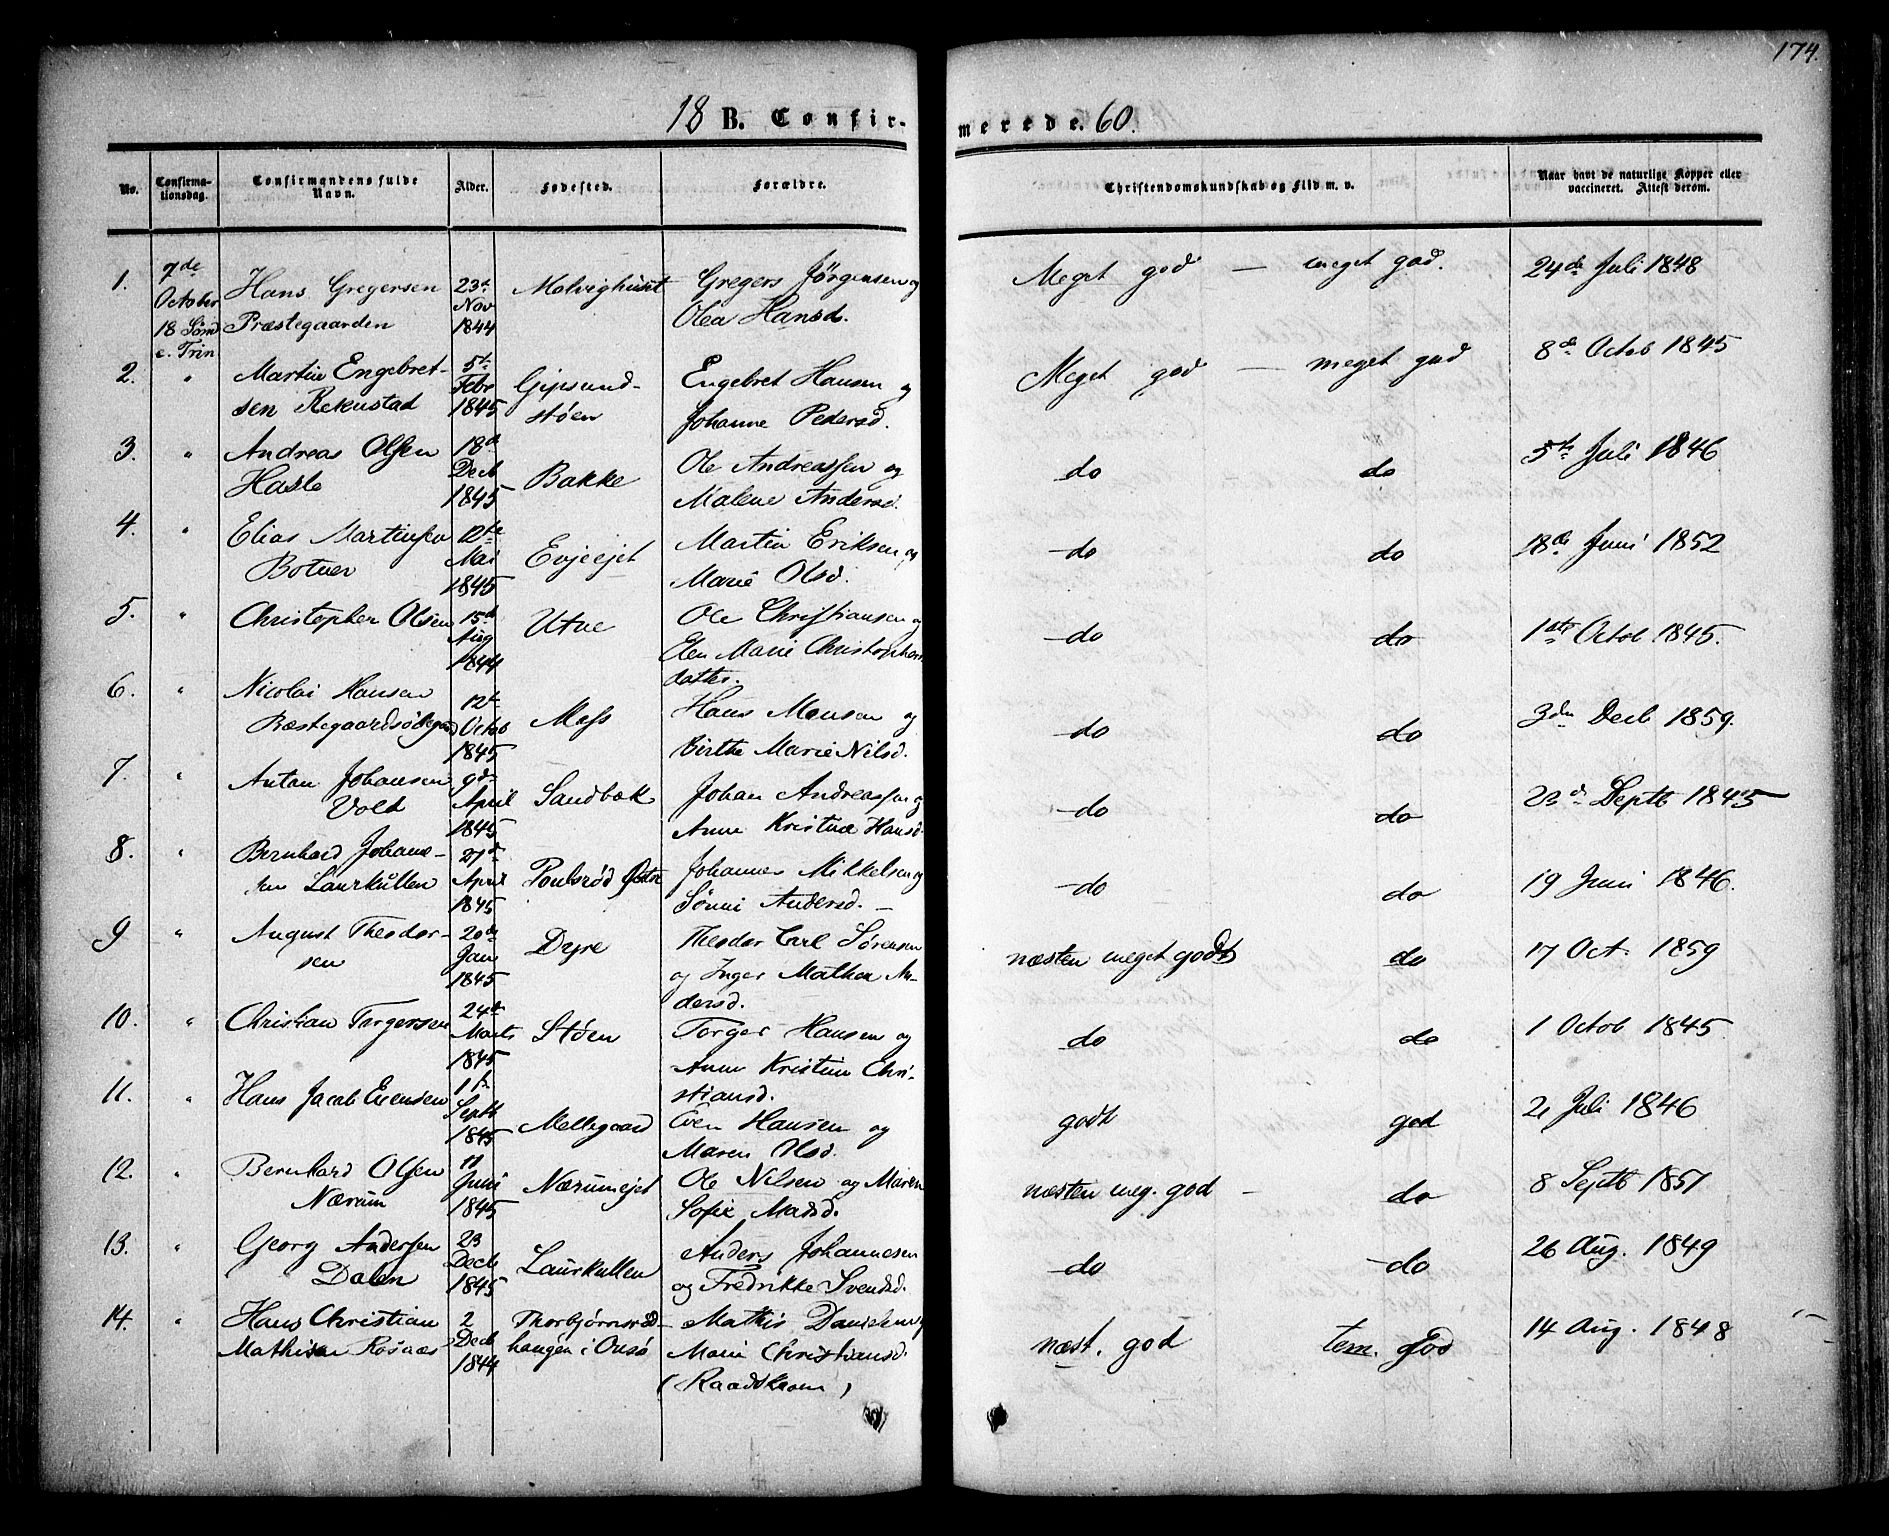 174.
18 B. Confir- merede. 60.
No. Confirma- tionsdag. Confirmandens fulde Navn. Alder. Fødested. Forældre. Christendomskundskab og Flid m. v. Naar havt de naturlige Kopper eller vaccineret. Attest derom.
1. 7de October 18 Sønd e. Trin
Hans Gregersen Præstegaarden
23de Nov 1844
Gregers Jørgensen og Olea Hansd.
Meget god — meget god.
24de Juli 1848
2. "
Martin Engebret- sen Rekustad
5te Febr 1845
Gipsund- støen
Engebret Hansen og Johanne Pedersd.
Meget god — meget god
8de Octob 1845
3. "
Andreas Olsen Hasle
18de Decb 1845
Bakke
Ole Andreassen og Malene Andersd.
do do
5te Juli 1846
4. "
Elias Martinsen Botner
12te Mai 1845
Evjeejet
Martin Eriksen og Marie Olsd.
do do
18de Juni 1852
5. "
Christopher Olsen
15de Aug 1844
Utne
Ole Christiansen og Elen Marie Christophers datter.
do do
1ste Octob 1845.
6. "
Nicolai Hansen
12te Octob 1845
Moss
Hans Monsen og Birthe Marie Nilsd.
do do
3die Decb 1859.
7. "
Anton Johansen Vold
9de April 1845
Sandbæk
Johan Andreassen og Anne Kristine Hansd.
do do
23de Septb 1845
8. "
Bernhard Johanne- sen Laurkullen
27de April 1845
Poulsrød Østre
Johannes Mikkelsen og Sønni Andersd. —
do do
19 Juni 1846.
9 "
August Theodor- sen
20de Jan 1845
Dyre
Theodor Carl Sørensen og Inger Mathea An- dersd.
næsten meget godt do
17 Oct. 1859
10. "
Christian Torgersen
24de Marts 1845
Støen
Torger Hansen og Anne Kristine Chri- stiansd.
do do
1 Octob 1845
11. "
Hans Jacob Evensen
1te Septb 1845
Mellegaard
Even Hansen og Maren Olsd.
godt god
2 Juli 1846
12. "
Bernhard Olsen Nærum
11 Juni 1845
Nærumejet
Ole Nilsen og Maren Sofie Madsd.
næsten meg. god — do
8 Septb 1851
13. "
Georg Andersen Dalen
23 Decb 1845
Laurkullen
Anders Johannesen og Fredrikke Svendsd.
do do
26 Aug. 1849
14. "
Hans Christian Mathisen Rosnæs
2 Decb 1844
Thorbjørnsrød- haugen i Onsø
Mathis Danielsen og Marie Christiansd.
næst. god tem. god
14 Aug. 1848